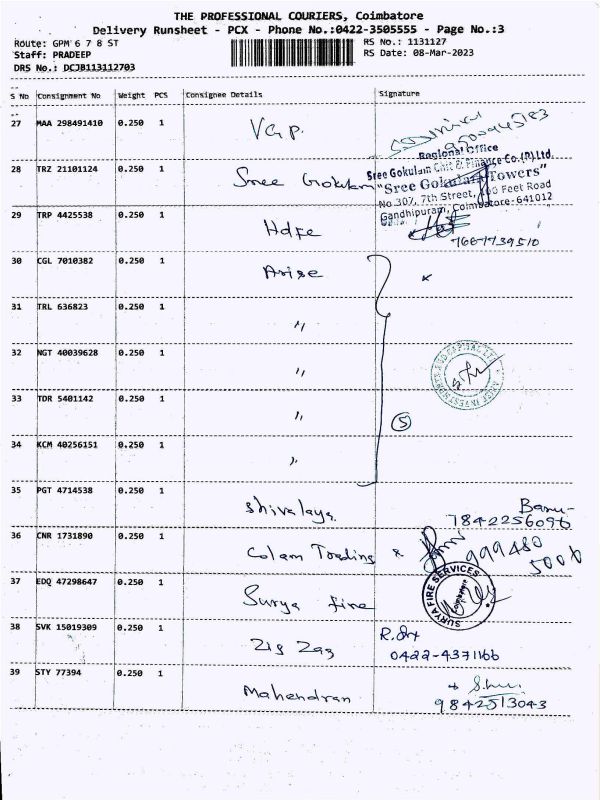 THE PROFESSIONAL COURIERS, Coimbatore
Delivery Runsheet - PCX - Phone No.:0422-3505555 - Page No.:3
Route: GPM 6 7 8 ST RS No.: 1131127
Staff: PRADEEP RS Date: 08-Mar-2023
DRS No.: DCJB113112703
S No Consignment No Weight PCS Consignee Details Signature
27 MAA 298491410 0.250 1 VGP.
28 TRZ 21101124 0.250 1 Sree Gokulam
Regional Office
Sree Gokulam Chit & Finance Co.(P)Ltd.
"Sree Gokulam Towers"
No.307, 7th Street, 100 Feet Road
Gandhipuram, Coimbatore-641012
29 TRP 4425538 0.250 1 Hdfc 7667739510
30 CGL 7010382 0.250 1 Arise x
31 TRL 636823 0.250 1 "
32 NGT 40039628 0.250 1 "
33 TDR 5401142 0.250 1 " 5
34 KCM 40256151 0.250 1 "
35 PGT 4714538 0.250 1 Shivalaya Banu-
7842256096
36 CNR 1731890 0.250 1 Colam Trading x 999480
5006
37 EDQ 47298647 0.250 1 Surya fire
SURYA FIRE SERVICES
Coimbatore
38 SVK 15019309 0.250 1 Zig Zag
0422-4371166
39 STY 77394 0.250 1 Mahendran
9842513043